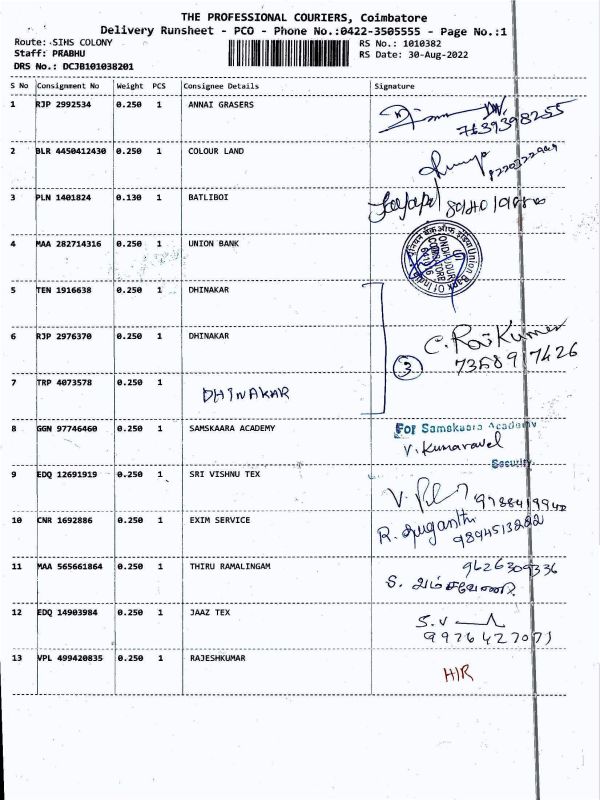 THE PROFESSIONAL COURIERS, Coimbatore
Delivery Runsheet - PCO - Phone No.:0422-3505555 - Page No.:1
Route: SIHS COLONY
Staff: PRABHU
DRS No.: DCJB101038201
RS No.: 1010382
RS Date: 30-Aug-2022
S No Consignment No Weight PCS Consignee Details Signature
1 RJP 2992534 0.250 1 ANNAI GRASERS
2 BLR 4450412430 0.250 1 COLOUR LAND
3 PLN 1401824 0.130 1 BATLIBOI
4 MAA 282714316 0.250 1 UNION BANK
5 TEN 1916638 0.250 1 DHINAKAR
6 RJP 2976370 0.250 1 DHINAKAR C. RajKumar
3 7358917426
7 TRP 4073578 0.250 1 DHINAKAR
8 GGN 97746460 0.250 1 SAMSKAARA ACADEMY For Samskaara Academy
V. Kumaravel
Security
9 EDQ 12691919 0.250 1 SRI VISHNU TEX
10 CNR 1692886 0.250 1 EXIM SERVICE R. Suganthi
11 MAA 565661864 0.250 1 THIRU RAMALINGAM 9626309336
12 EDQ 14903984 0.250 1 JAAZ TEX S.V
9976427071
13 VPL 499420835 0.250 1 RAJESHKUMAR H/R